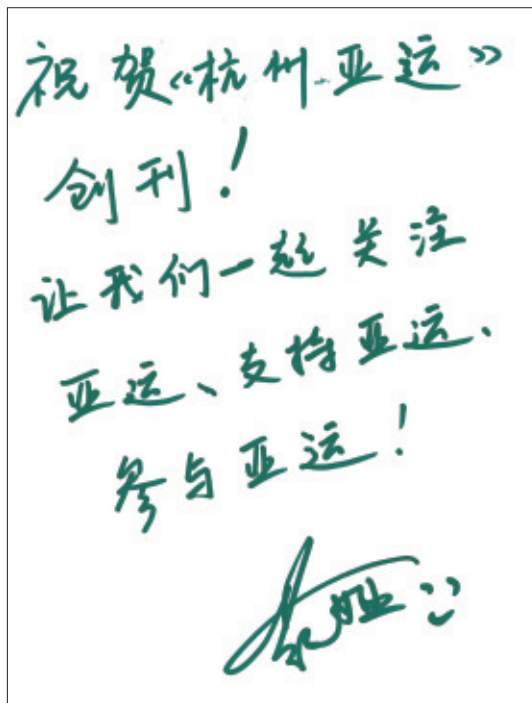 祝贺《杭州亚运》
创刊！
让我们一起关注
亚运、支持亚运、
参与亚运！